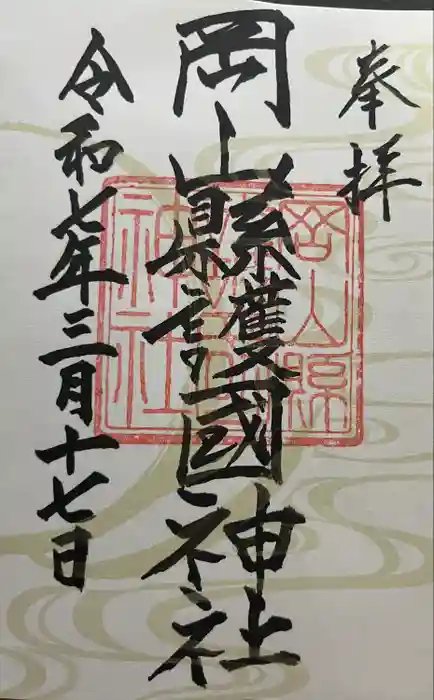 奉拝
岡山縣護國神社
令和七年三月十七日
岡山県護国神社